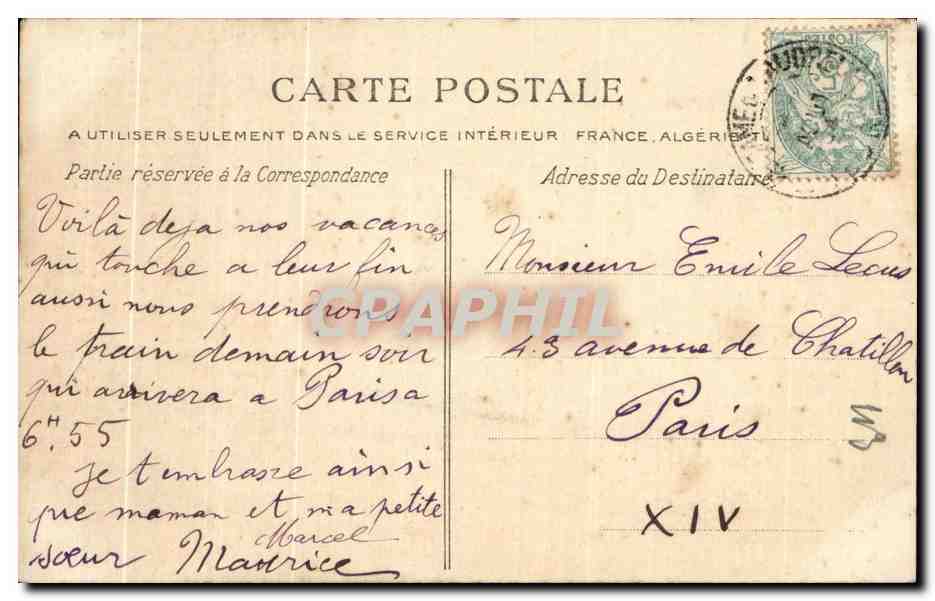 CARTE POSTALE
A UTILISER SEULEMENT DANS LE SERVICE INTÉRIEUR FRANCE, ALGÉRIE
Partie réservée à la Correspondance
Adresse du Destinataire
POSTES
Voilà deja nos vacances
qui touche a leur fin
aussi nous prendrons
le train demain soir
qui arrivera a Paris a
6H,55
Je t'embrasse ainsi
que maman et ma petite
sœur Maurice
Marcel
Monsieur Emile Lecus
43 avenue de Chatillon
Paris
XIV
CPAPHIL